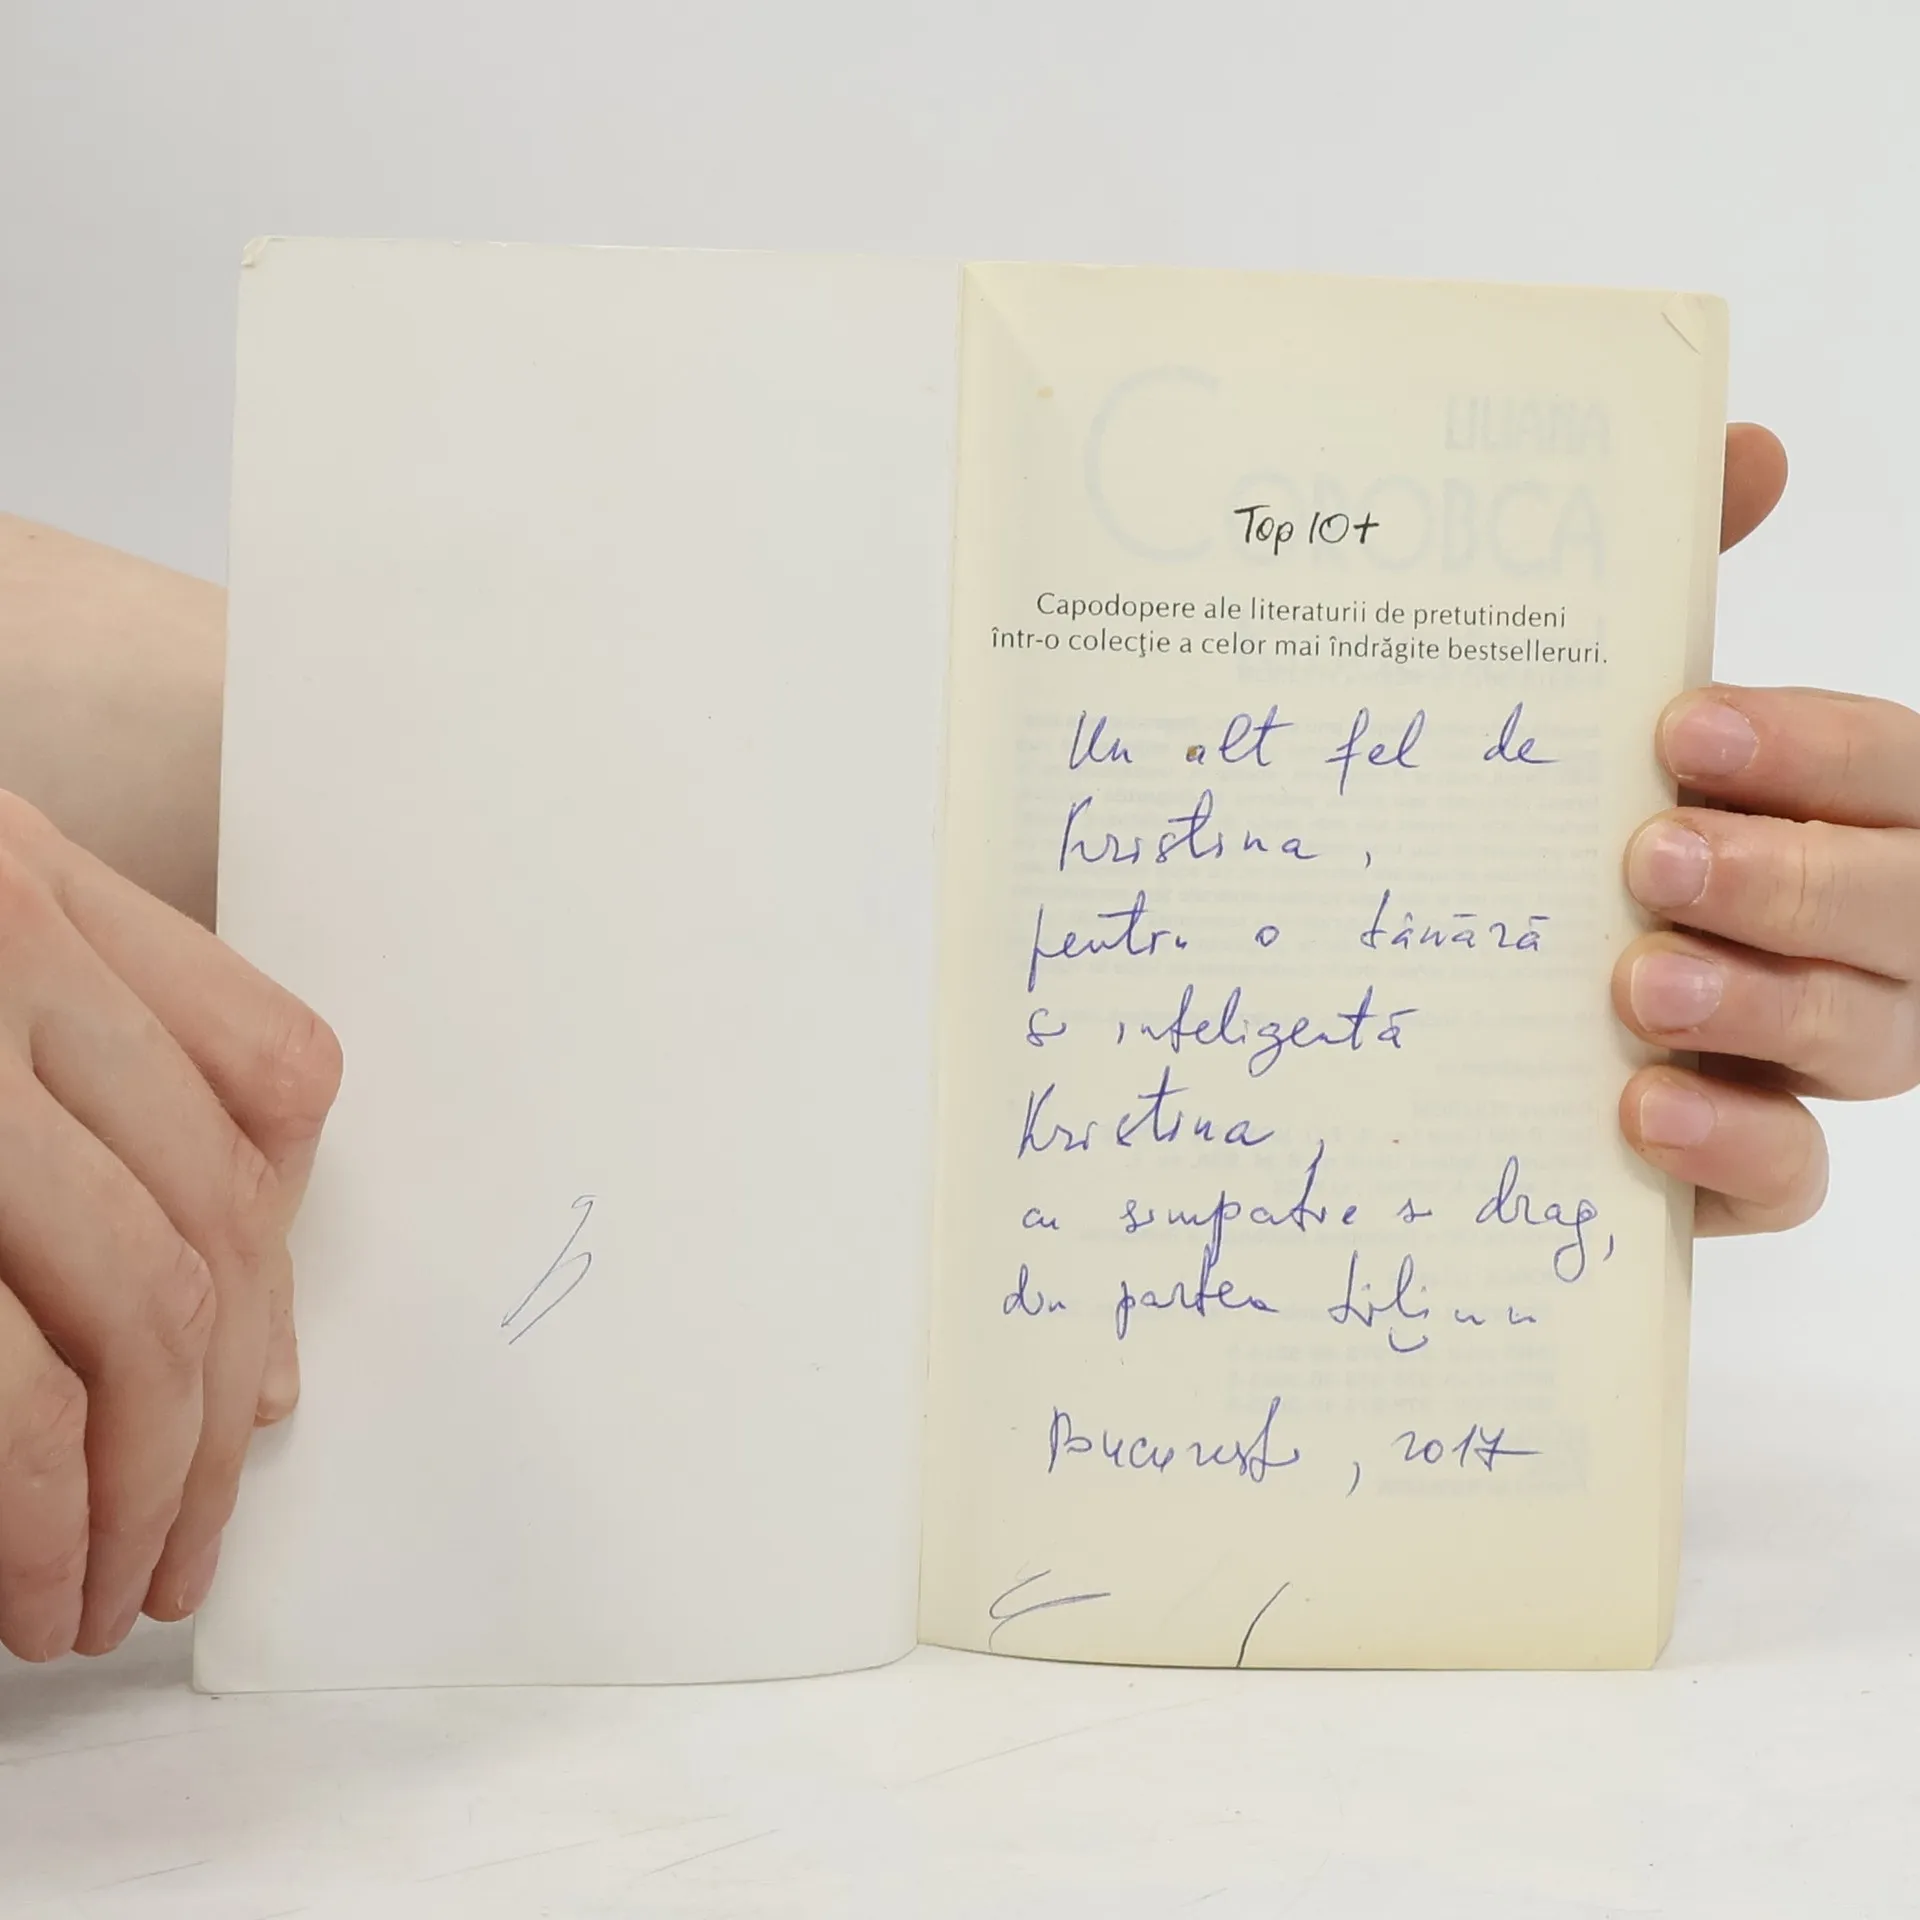 Top 10+
Capodopere ale literaturii de pretutindeni
într-o colecţie a celor mai îndrăgite bestselleruri.
Un alt fel de
Kristina,
pentru o tânără
inteligentă
Kristina,
cu simpatie drag,
din partea
București, 2017
LILIANA
COROBCA